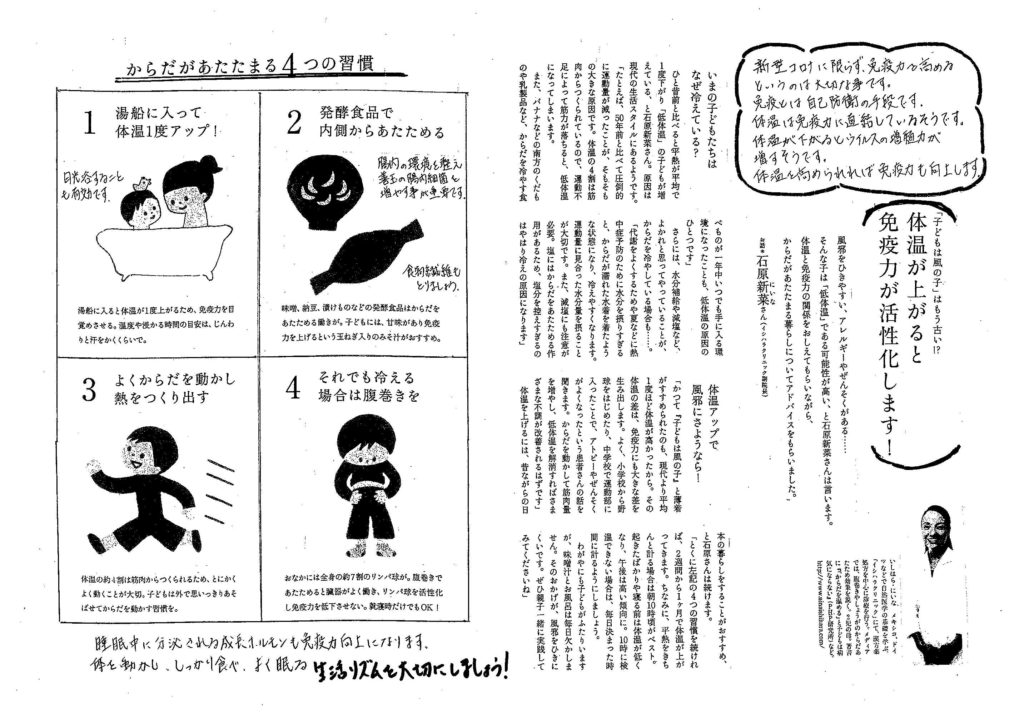 新型コロナに限らず、免疫力を高める
というのは大切な事です。
免疫とは自己防衛の手段です。
体温は免疫力に直結しているそうです。
体温が下がるとウイルスの増殖力が
増すそうです。
体温を高められれば免疫力も向上します
「子どもは風の子」はもう古い!?
体温が上がると
免疫力が活性化します！
風邪をひきやすい、アレルギーやぜんそくがある……
そんな子は「低体温」である可能性が高い、と石原新菜さんは言います。
体温と免疫力の関係をおしえてもらいながら、
からだがあたたまる暮らしについてアドバイスをもらいました。
お話＊石原新菜さん（イシハラクリニック副院長）
にいな
いまの子どもたちは
なぜ冷えている？
ひと昔前と比べると平熱が平均で
1度下がり「低体温」の子どもが増
えている、と石原新菜さん。原因は
現代の生活スタイルにあるようです。
「たとえば、50年前と比べて圧倒的
に運動量が減ったことが、そもそも
の大きな原因です。体温の4割は筋
肉からつくられているので、運動不
足によって筋力が落ちると、低体温
になってしまいます。
また、バナナなどの南方のくだも
のや乳製品など、からだを冷やす食
べものが一年中いつでも手に入る環
境になったことも、低体温の原因の
ひとつです」
さらには、水分補給や減塩など、
よかれと思ってやっていることが、
からだを冷やしている場合も……。
「代謝をよくするためや夏などに熱
中症予防のために水分を摂りすぎる
と、からだが濡れた水着を着たよう
な状態になり、冷えやすくなります。
運動量に見合った水分量を摂ること
が大切です。また、減塩にも注意が
必要。塩にはからだをあたためる作
用があるため、塩分を控えすぎるの
はやはり冷えの原因になります」
体温アップで
風邪にさようなら！
「かつて『子どもは風の子』と薄着
がすすめられたのも、現代より平均
1度ほど体温が高かったから。その
体温の差は、免疫力にも大きな差を
生み出します。よく、小学校から野
球をはじめたり、中学校で運動部に
入ったことで、アトピーやぜんそく
がよくなったという患者さんの話を
聞きます。からだを動かして筋肉量
を増やし、低体温を解消すればさま
ざまな不調が改善されるはずです」
体温を上げるには、昔ながらの日
本の暮らしをすることがおすすめ、
と石原さんは続けます。
「とくに左記の4つの習慣を続けれ
ば、2週間から1ヶ月で体温が上が
ってきます。ちなみに、平熱をきち
んと計る場合は朝10時頃がベスト。
起きたばかりや寝る前は体温が低く
なり、午後は高い傾向に。10時に検
温できない場合は、毎日決まった時
間に計るようにしましょう。
わがやにも子どもがふたりいます
が、味噌汁とお風呂は毎日欠かしま
せん。そのおかげか、風邪をひきに
くいです。ぜひ親子一緒に実践して
みてくださいね」
からだがあたたまる4つの習慣
1
湯船に入って
体温1度アップ！
日光浴すること
も有効です。
湯船に入ると体温が1度上がるため、免疫力を目
覚めさせる。温度や浸かる時間の目安は、じんわ
りと汗をかくくらいで。
2
発酵食品で
内側からあたためる
腸内の環境を整え
善玉の腸内細菌を
増やす事が重要です。
食物繊維も
とりましょう。
味噌、納豆、漬けものなどの発酵食品はからだを
あたためる働きが。子どもには、甘味があり免疫
力を上げるという玉ねぎ入りのみそ汁がおすすめ。
3
よくからだを動かし
熱をつくり出す
体温の約4割は筋肉からつくられるため、とにかく
よく動くことが大切。子どもは外で思いっきりあ
そばせてからだを動かす習慣を。
4
それでも冷える
場合は腹巻きを
おなかには全身の約7割のリンパ球が。腹巻きで
あたためると臓器がよく働き、リンパ球を活性化
し免疫力を低下させない。就寝時だけでもOK！
睡眠中に分泌される成長ホルモンも免疫力向上になります。
体を動かし、しっかり食べ、よく眠る 生活リズムを大切にしましょう！